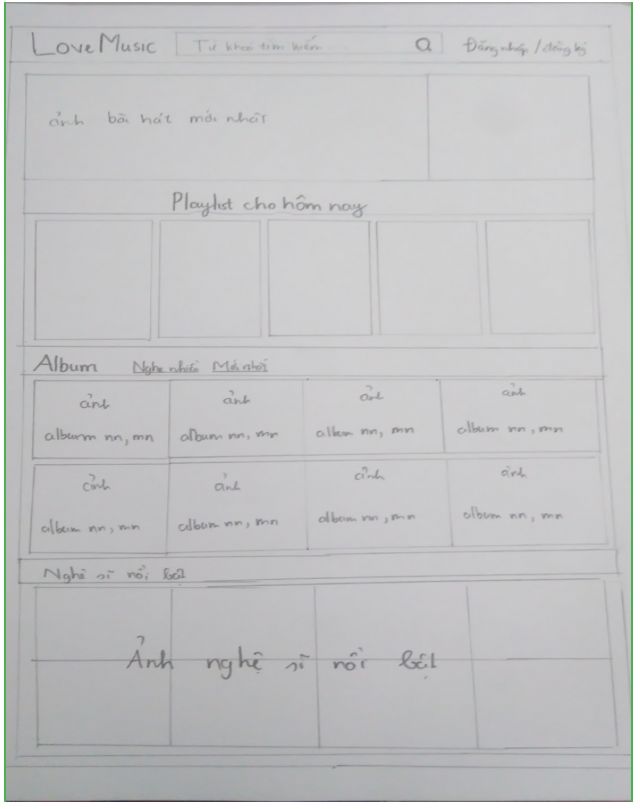 LoveMusic Từ khoá tìm kiếm Đăng nhập / đăng ký
ảnh bài hát mới nhất
Playlist cho hôm nay
Album Nghe nhiều Mới nhất
ảnh ảnh ảnh ảnh
album nn, mn album nn, mn album nn, mn album nn, mn
ảnh ảnh ảnh ảnh
album nn, mn album nn, mn album nn, mn album nn, mn
Nghệ sĩ nổi bật
Ảnh nghệ sĩ nổi bật